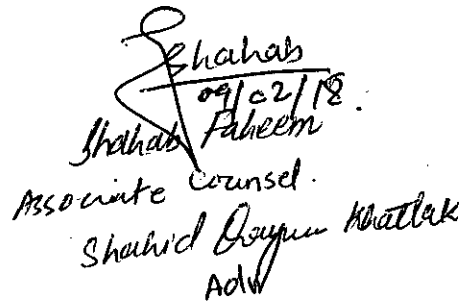 Shahab
09/02/18.
Shahab Faheem
Associate Counsel.
Shahid Qayum Khattak
Adv